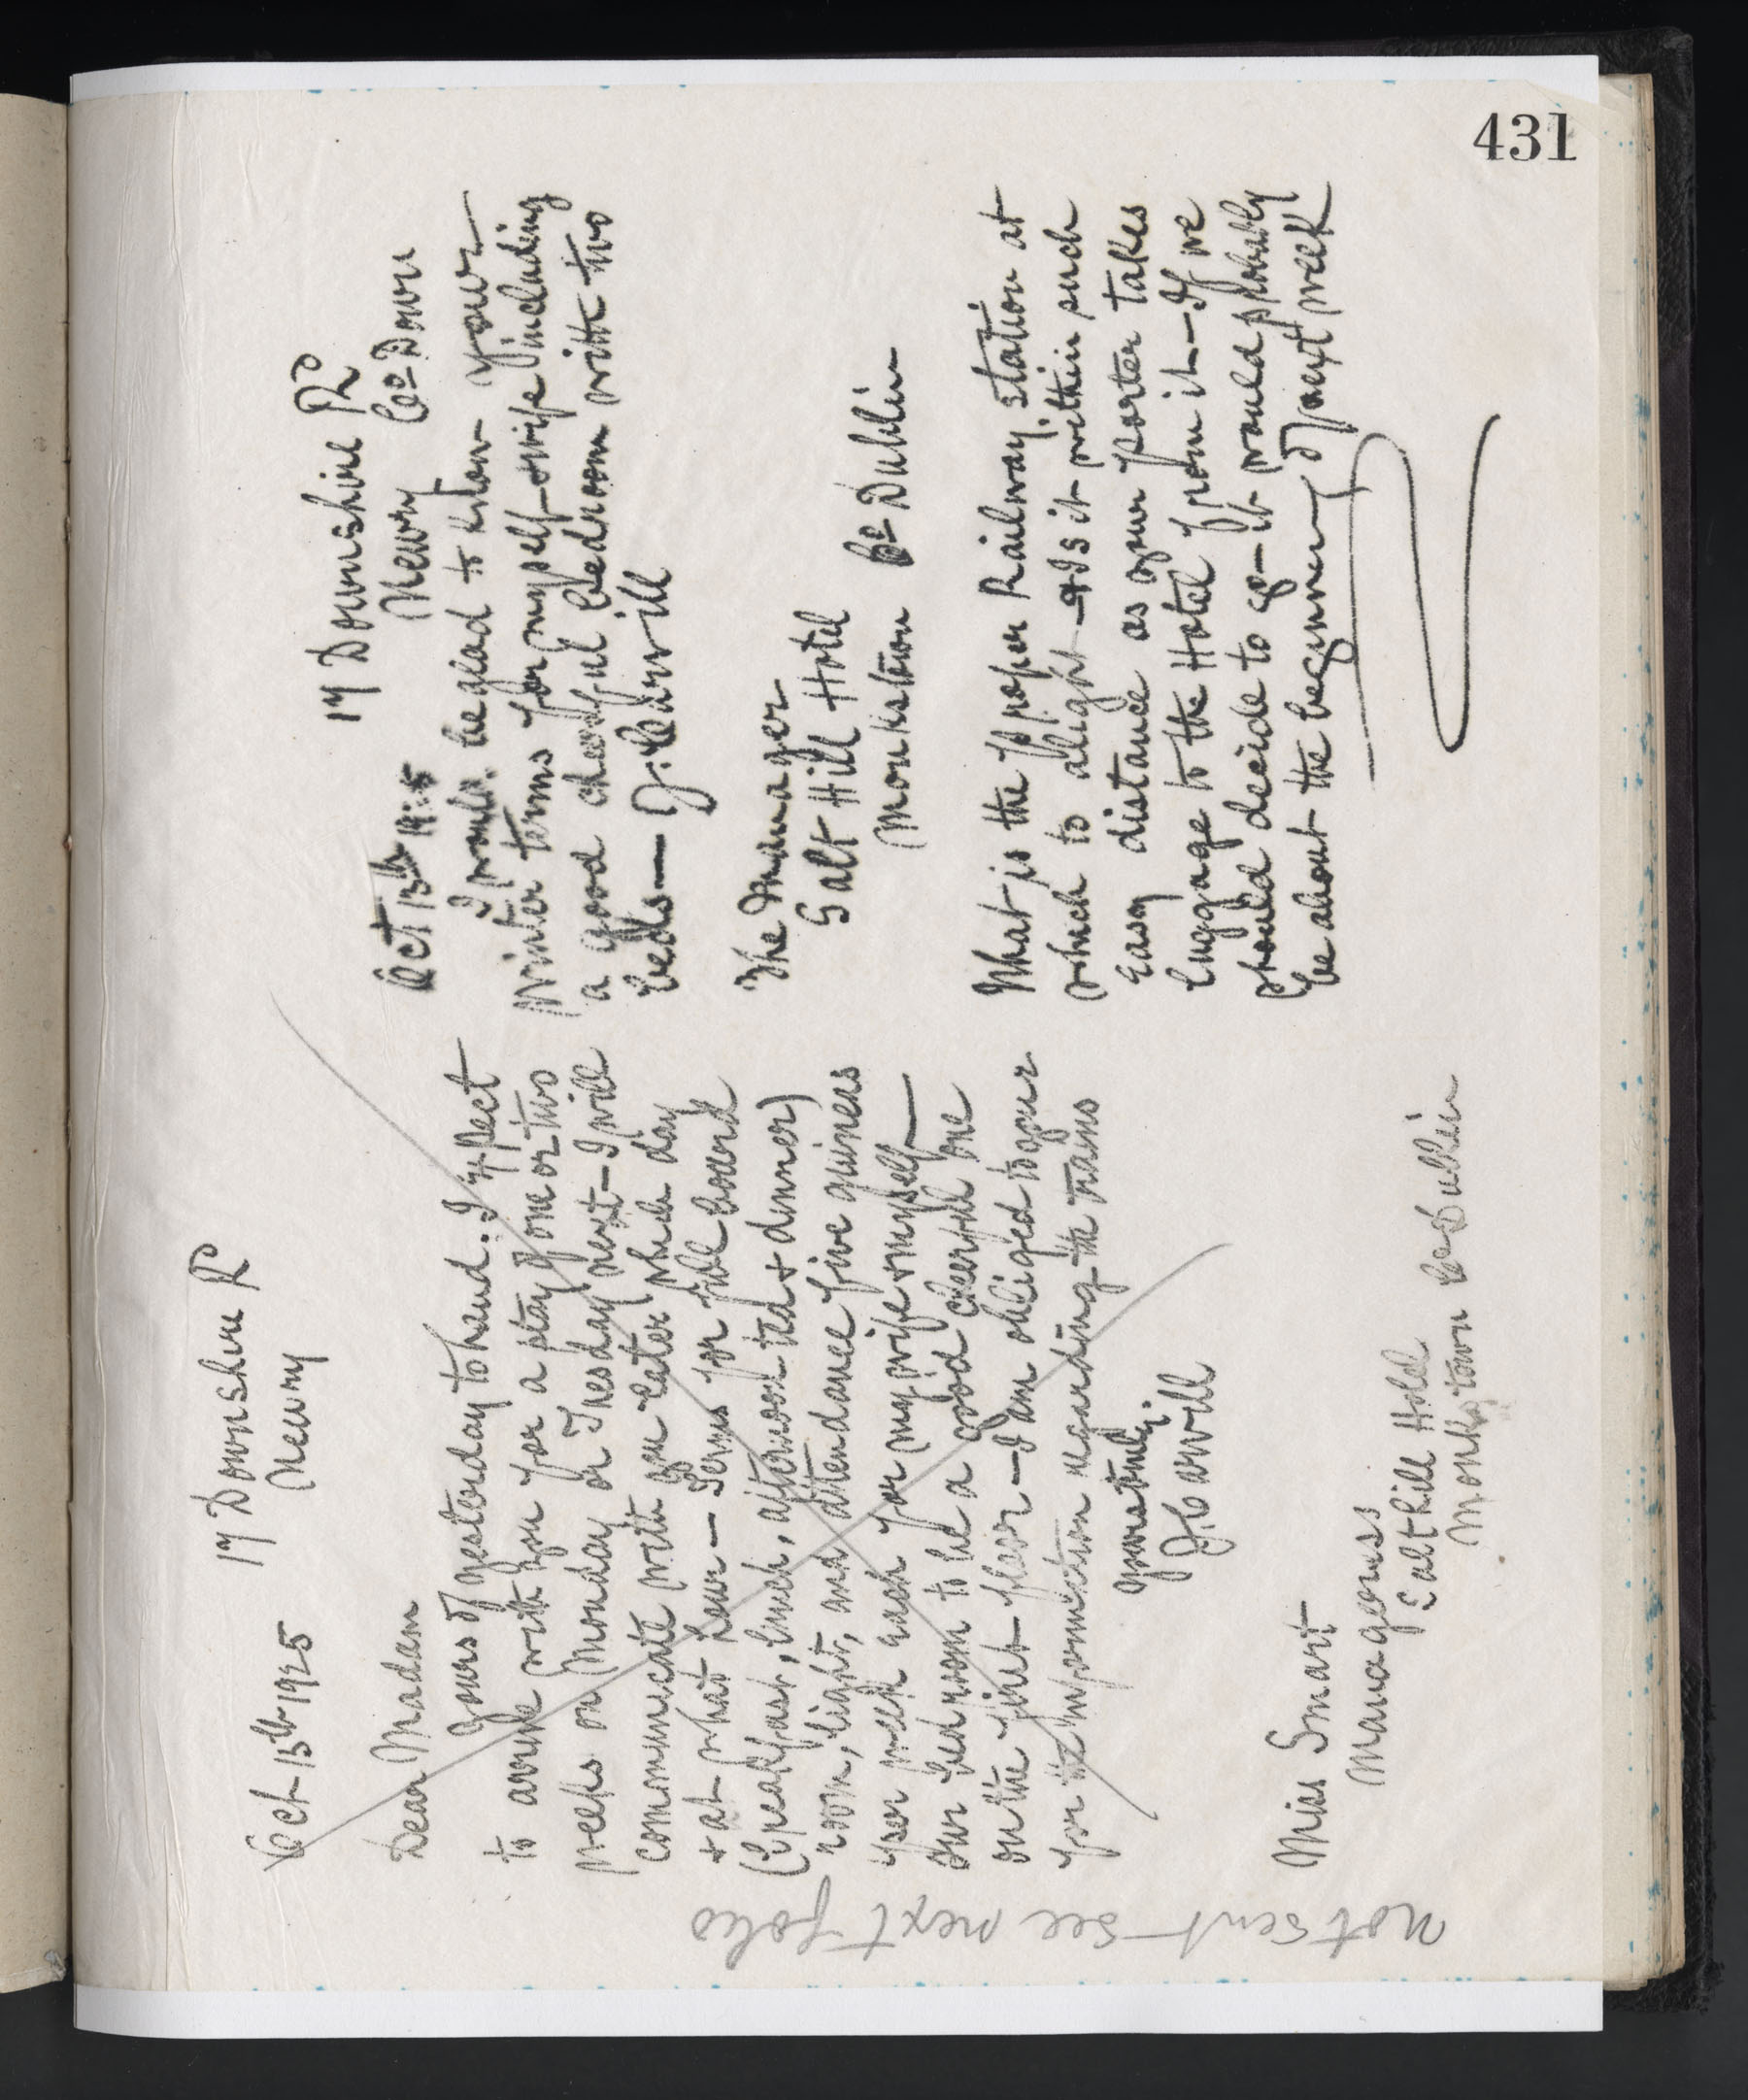 431
17 Downshire Rd
Newry
Oct 15th 1925
Dear Madam
Yours of yesterday to hand. I expect
to arrive with you for a stay of one or two
weeks on Monday or Tuesday next — I will
communicate with you later which day
+ at what hour — Terms for full board
(breakfast, lunch, afternoon tea + dinner)
room, light, and attendance five guineas
per week each for my wife + myself —
Our bedroom to be a good cheerful one
on the first floor — I am obliged to you
for the information regarding the trains
yours truly.
J. Carvill
Miss Smart
Manageress
Salthill Hotel
Monkstown Co Dublin
not sent see next folio
17 Downshire Rd
Newry Co Down
Oct 13th 1925
I would be glad to know your
winter terms for myself + wife including
a good cheerful bedroom with two
beds — J. Carvill
The Manager
Salt Hill Hotel
Monkstown Co Dublin
What is the proper Railway station at
which to alight — + Is it within such
easy distance as your porter takes
luggage to the Hotel from it — If we
should decide to go — it would probably
be about the beginning of next week